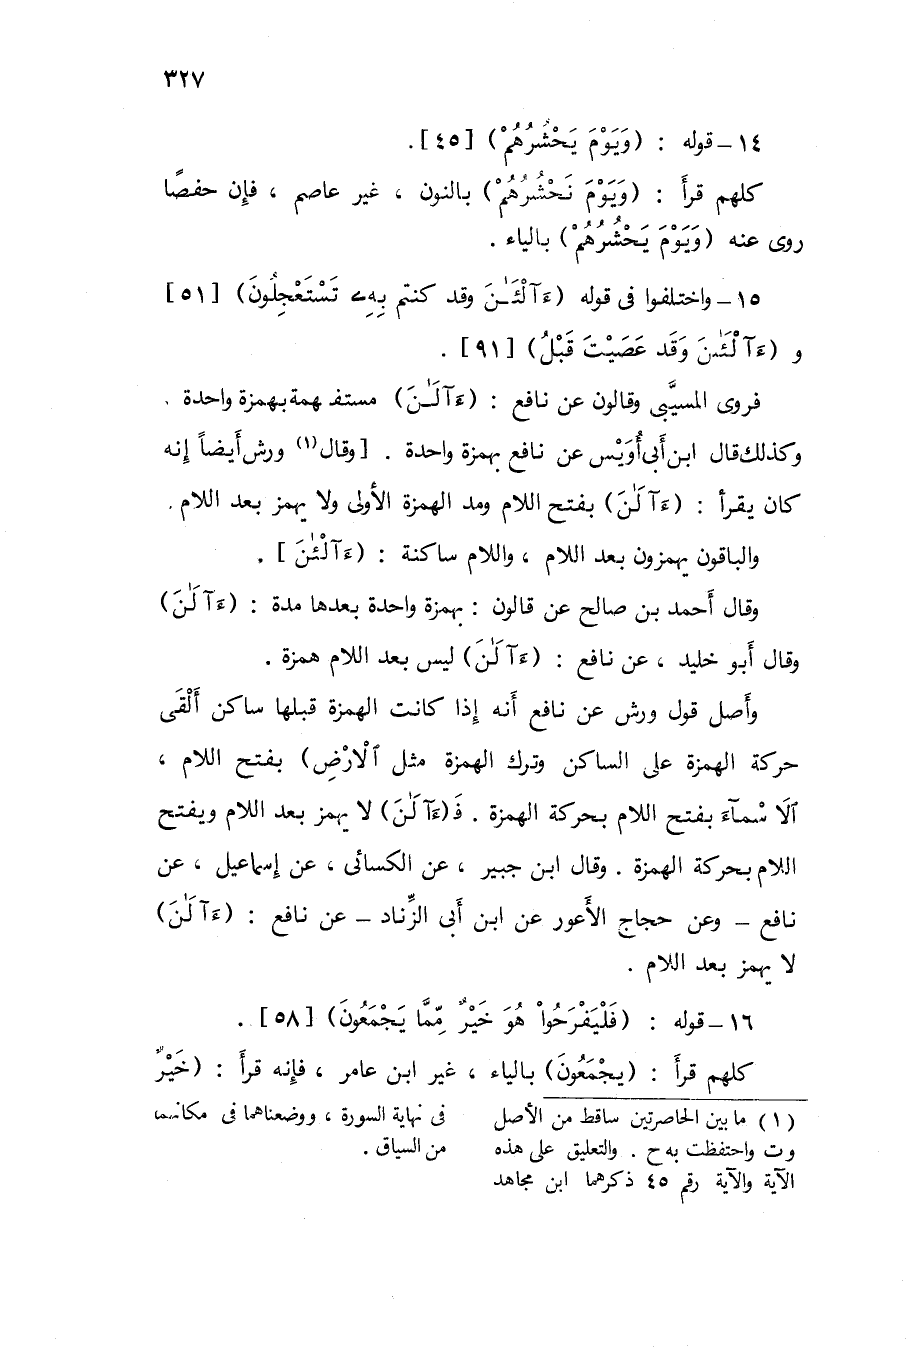 ٣٢٧
١٤ – قوله : (وَيَوْمَ يَحْشُرُهُمْ) [٤٥] .
كلهم قرأَ : (وَيَوْمَ نَحْشُرُهُمْ) بالنون ، غير عاصم ، فإن حفصًا
روى عنه (وَيَوْمَ يَحْشُرُهُمْ) بالياء .
١٥ – واختلفوا فى قوله (ءَآلْـَٰٔنَ وقد كنتم بِهِۦ تَسْتَعْجِلُونَ) [٥١]
و (ءَآلْـَٰٔنَ وَقَد عَصَيْتَ قَبْلُ) [٩١] .
فروى المسيَّبى وقالون عن نافع : (ءَآلَـٰنَ) مستفهمة بهمزة واحدة .
وكذلك قال ابن أَبى أُوَيْس عن نافع بهمزة واحدة . [وقال(١) ورش أَيضاً إنه
كان يقرأ : (ءَآلَـٰنَ) بفتح اللام ومد الهمزة الأولى ولا يهمز بعد اللام .
والباقون يهمزون بعد اللام ، واللام ساكنة : (ءَآلْـَٰٔنَ ] .
وقال أَحمد بن صالح عن قالون : بهمزة واحدة بعدها مدة : (ءَآلَـٰنَ)
وقال أَبو خليد ، عن نافع : (ءَآلَـٰنَ) ليس بعد اللام همزة .
وأَصل قول ورش عن نافع أَنه إذا كانت الهمزة قبلها ساكن أَلْقَى
حركة الهمزة على الساكن وترك الهمزة مثل ٱلَارْضِ) بفتح اللام ،
ٱلَا سْمَآءَ بفتح اللام بحركة الهمزة . فَـ(ءَآلَـٰنَ) لا يهمز بعد اللام ويفتح
اللام بحركة الهمزة . وقال ابن جبير ، عن الكسائى ، عن إسماعيل ، عن
نافع – وعن حجاج الأَعور عن ابن أَبى الزِّناد – عن نافع : (ءَآلَـٰنَ)
لا يهمز بعد اللام .
١٦ – قوله : (فَلْيَفْرَحُواْ هُوَ خَيْرٌ مِّمَّا يَجْمَعُونَ) [٥٨] .
كلهم قرأَ : (يجْمَعُونَ) بالياء ، غير ابن عامر ، فإنه قرأَ : (خَيْرٌ
(١) ما بين الحاصرتين ساقط من الأصل
وت واحتفظت به ح . والتعليق على هذه
الآية والآية رقم ٤٥ ذكرهما ابن مجاهد
فى نهاية السورة ، ووضعناهما فى مكانهما
من السياق .